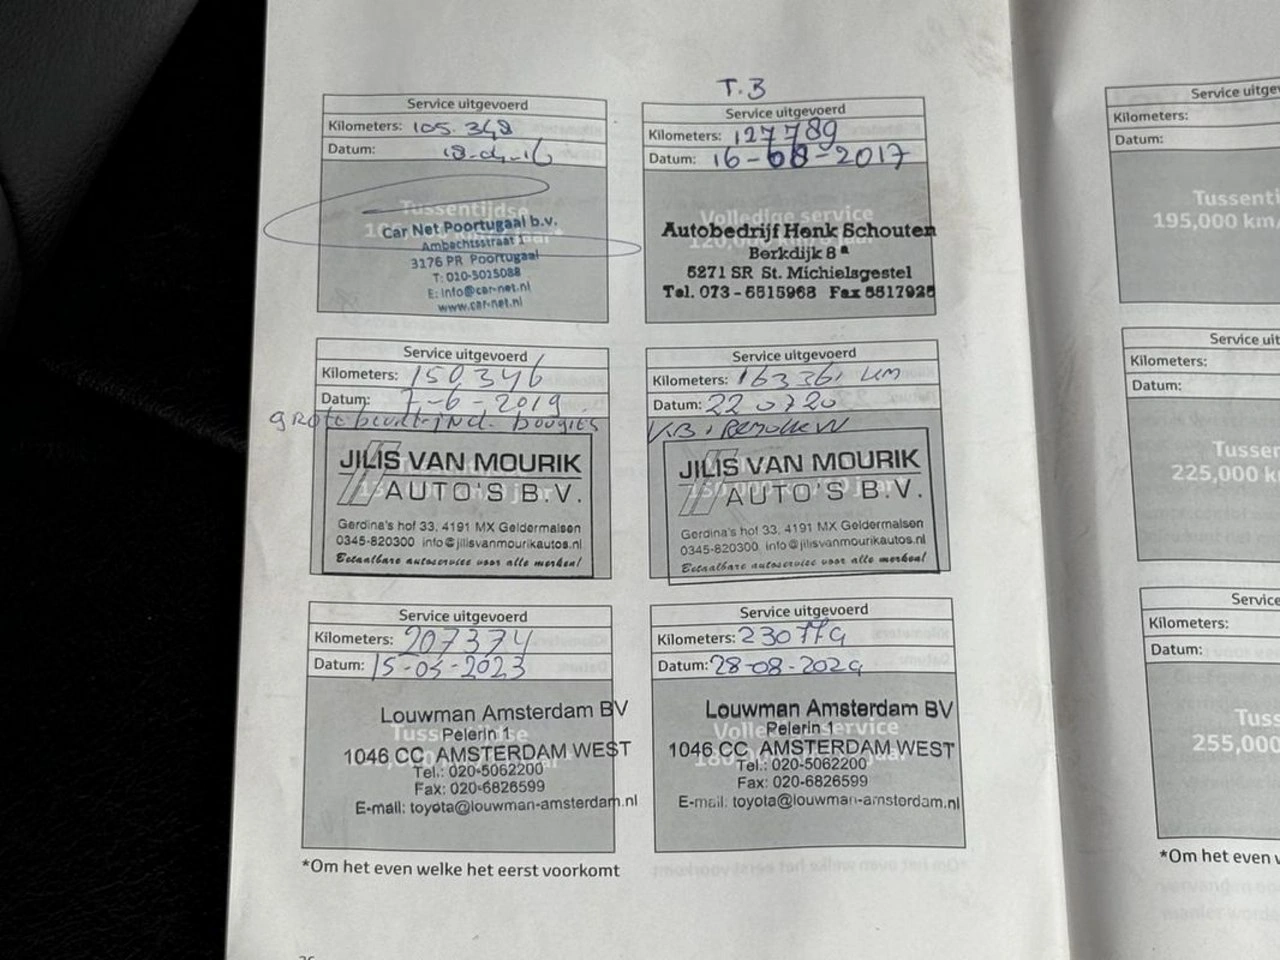 T.B
Service uitgevoerd
Kilometers: 105.348
Datum: 18-04-16
Tussentijdse
Car Net Poortugaal b.v.
Ambachtsstraat 1
3176 PR Poortugaal
T: 010-5015088
E: info@car-net.nl
www.car-net.nl
Service uitgevoerd
Kilometers: 127789
Datum: 16-08-2017
Volledige service
Autobedrijf Henk Schouten
Berkdijk 8a
5271 SR St. Michielsgestel
Tel. 073-5515968 Fax 5517925
Service uitgevoerd
Kilometers: 150.346
Datum: 7-6-2019
grote beurt incl. bougies
JILIS VAN MOURIK
AUTO'S B.V.
Gerdina's hof 33, 4191 MX Geldermalsen
0345-820300 info@jilisvanmourikautos.nl
Betaalbare autoservice voor alle merken!
Service uitgevoerd
Kilometers: 163361 km
Datum: 22 07 20
K.B. + Remolie W
JILIS VAN MOURIK
AUTO'S B.V.
Gerdina's hof 33, 4191 MX Geldermalsen
0345-820300 info@jilisvanmourikautos.nl
Betaalbare autoservice voor alle merken!
Service uitgevoerd
Kilometers: 207374
Datum: 15-03-2023
Tussentijdse
Louwman Amsterdam BV
Pelerin 1
1046 CC AMSTERDAM WEST
Tel.: 020-5062200
Fax: 020-6826599
E-mail: toyota@louwman-amsterdam.nl
Service uitgevoerd
Kilometers: 230779
Datum: 28-08-2024
Volledige service
Louwman Amsterdam BV
Pelerin 1
1046 CC AMSTERDAM WEST
Tel.: 020-5062200
Fax: 020-6826599
E-mail: toyota@louwman-amsterdam.nl
*Om het even welke het eerst voorkomt
Service uitge
Kilometers:
Datum:
Tussenti
195,000 km
Service uit
Kilometers:
Datum:
Tussen
225,000 k
Service
Kilometers:
Datum:
Tuss
255,000
*Om het even